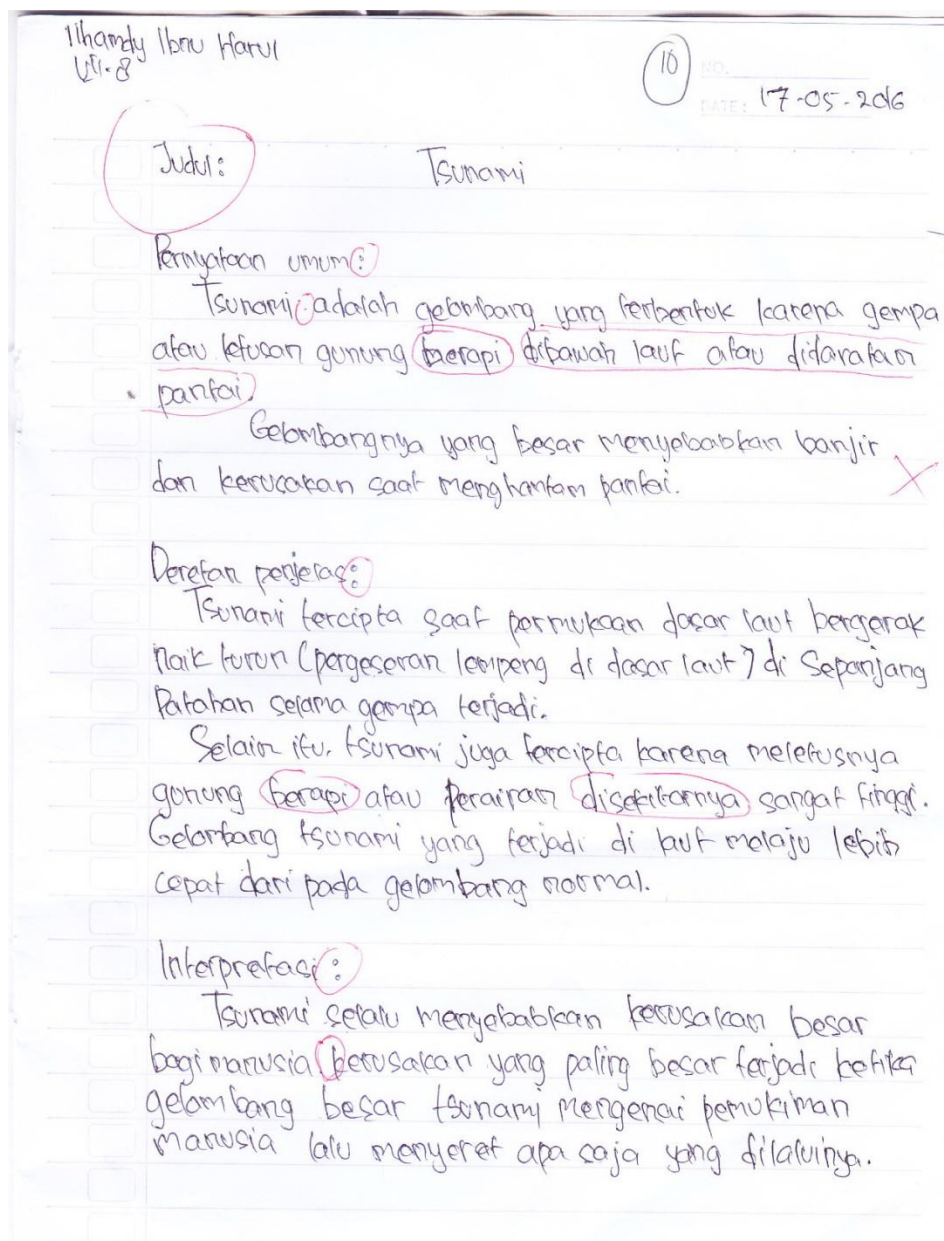 Ilhamdy Ibnu Harul
VII.8
10
NO.
DATE: 17-05-2016
Judul: Tsunami
Pernyataan umum:
Tsunami adalah gelombang yang terbentuk karena gempa
atau letusan gunung berapi dibawah laut atau didaratan
pantai.
Gelombangnya yang besar menyebabkan banjir
dan kerusakan saat menghantam pantai.
Deretan penjelas:
Tsunami tercipta saat permukaan dasar laut bergerak
naik turun (pergeseran lempeng di dasar laut) di Sepanjang
Patahan selama gempa terjadi.
Selain itu, tsunami juga tercipta karena meletusnya
gunung berapi atau perairan disekitarnya sangat tinggi.
Gelombang tsunami yang terjadi di laut melaju lebih
cepat dari pada gelombang normal.
Interpretasi:
Tsunami selalu menyebabkan kerusakan besar
bagi manusia kerusakan yang paling besar terjadi ketika
gelombang besar tsunami mengenai pemukiman
manusia lalu menyeret apa saja yang dilaluinya.